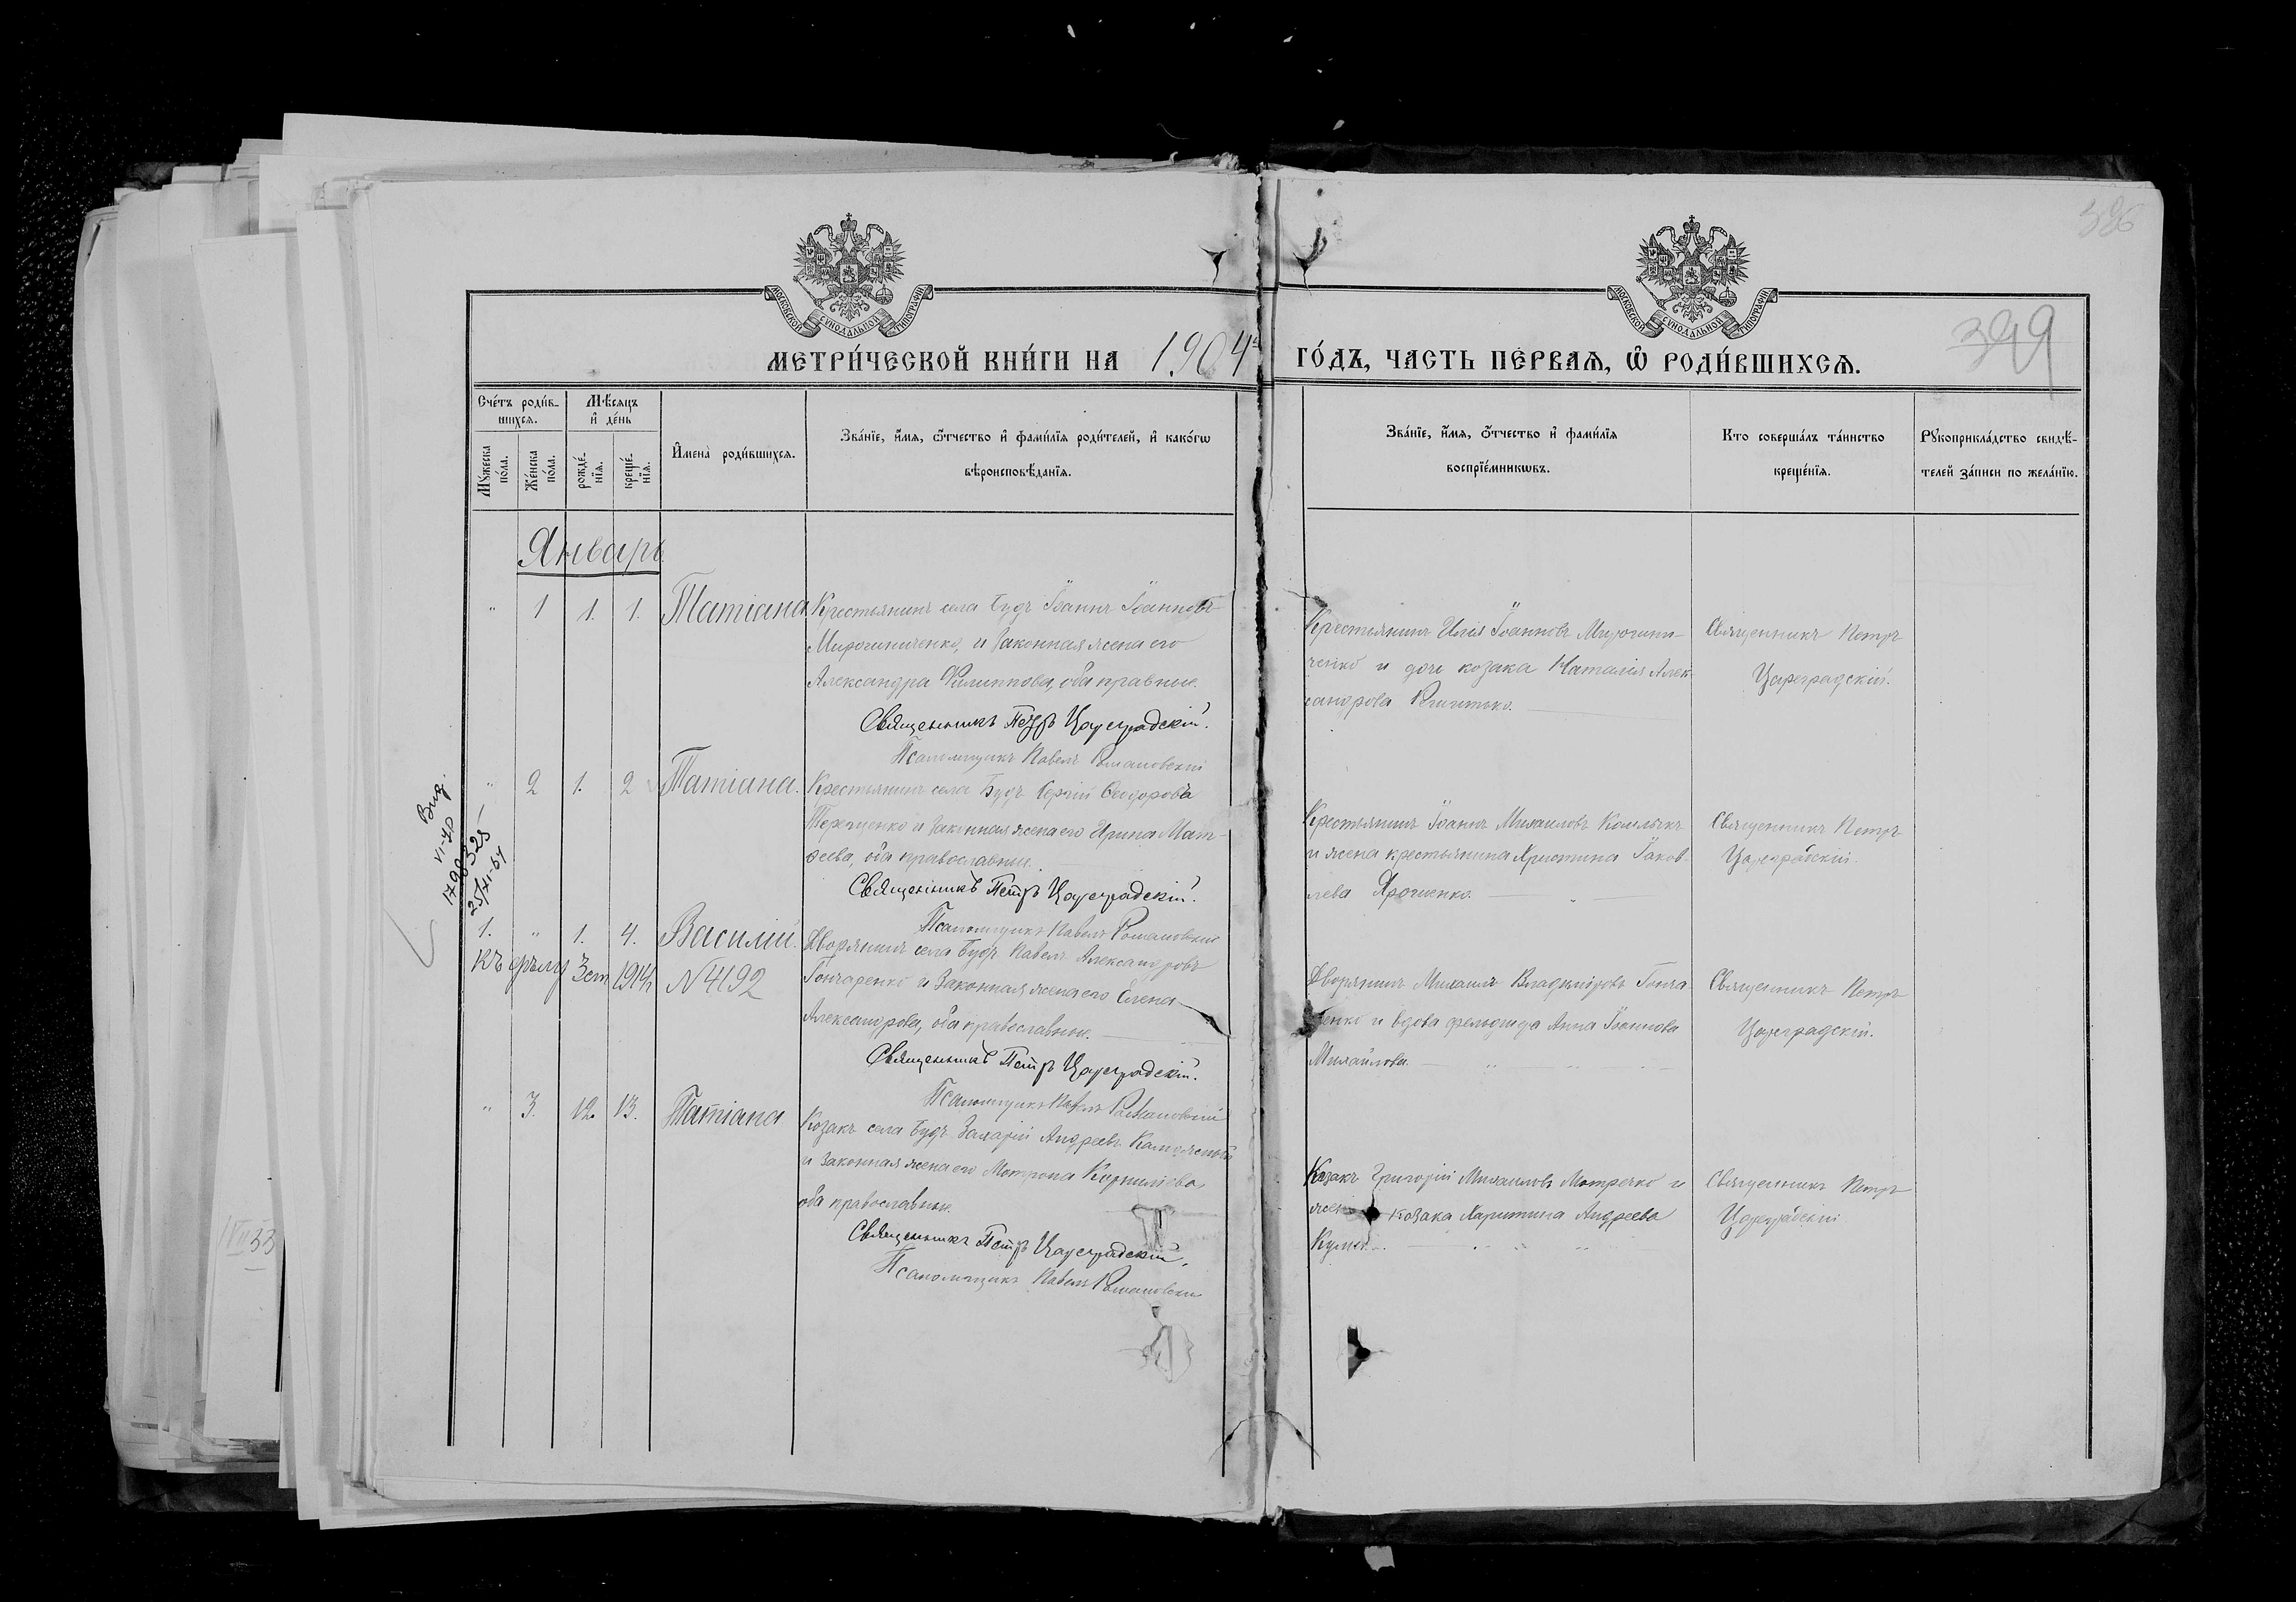 326
399
МОСКОВСКОЙ СУНОДАЛЬНОЙ ТИПОГРАФІИ
МОСКОВСКОЙ СУНОДАЛЬНОЙ ТИПОГРАФІИ
МЕТРИ́ЧЕСКОЙ КНИ́ГИ НА 1904
ГО́ДЪ, ЧАСТЬ ПЕ́РВАѦ, Ѿ РОДИ́ВШИХСѦ.
Сче́тъ роди́в-
шихсѧ.
Мꙋ́жеска по́ла.
Же́нска по́ла.
Мѣ́сѧцъ и҆ де́нь
рожде́-
нїѧ.
креще́-
нїѧ.
И҆мена̀ роди́вшихсѧ.
Зва́нїе, и҆́мѧ, ѻ҆́тчество и҆ фами́лїѧ роди́телей, и҆ како́гѡ
вѣроисповѣ́данїѧ.
Зва́нїе, и҆́мѧ, ѻ҆́тчество и҆ фами́лїѧ
воспрїе́мникѡвъ.
Кто соверша́лъ та́инство
креще́нїѧ.
Рꙋкоприкла́дство свидѣ́-
телей за́писи по жела́нїю.
Январь
" 1 1. 1. Татіана
Крестьянинъ села Будъ Іоаннъ Іоанновъ
Мирошниченко, и законная жена его
Александра Филиппова, оба правные.
Священникъ Петръ Цареградскій.
Псаломщикъ Павелъ Романовскій
Крестьянинъ Илія Іоанновъ Мирошни-
ченко и дочь козака Наталія Алек-
сандрова
Священникъ Петръ
Цареградскій.
" 2 1. 2 Татіана.
Крестьянинъ села Будъ Сергій Ѳеодоровъ
Терещенко и законная жена его Ирина Мат-
ѳеева, оба православные.
Священникъ Петръ Цареградскій.
Псаломщикъ Павелъ Романовскій
Крестьянинъ Іоаннъ Михаиловъ
и жена крестьянина Христина Іаков-
лева Ярошенко.
Священникъ Петръ
Цареградскій.
Выд.
25/XI-54
1. " 1. 4. Василій.
1914 N 4192
Дворянинъ села Будъ Павелъ Александровъ
Гончаренко и законная жена его Елена
Александрова, оба православные.
Священникъ Петръ Цареградскій.
Псаломщикъ Павелъ Романовскій
Дворянинъ Михаилъ Владиміровъ Гонча
ренко и вдова фельдшера Анна Іоаннова
Михайлова.
Священникъ Петръ
Цареградскій.
" 3. 12. 13. Татіана
Козакъ села Будъ Захарій Андреевъ
и законная жена его Матрона Корниліева,
оба православные.
Священникъ Петръ Цареградскій.
Псаломщикъ Павелъ Романовскій
Козакъ Григорій Михаиловъ и
козака Харитина Андреева
Священникъ Петръ
Цареградскій